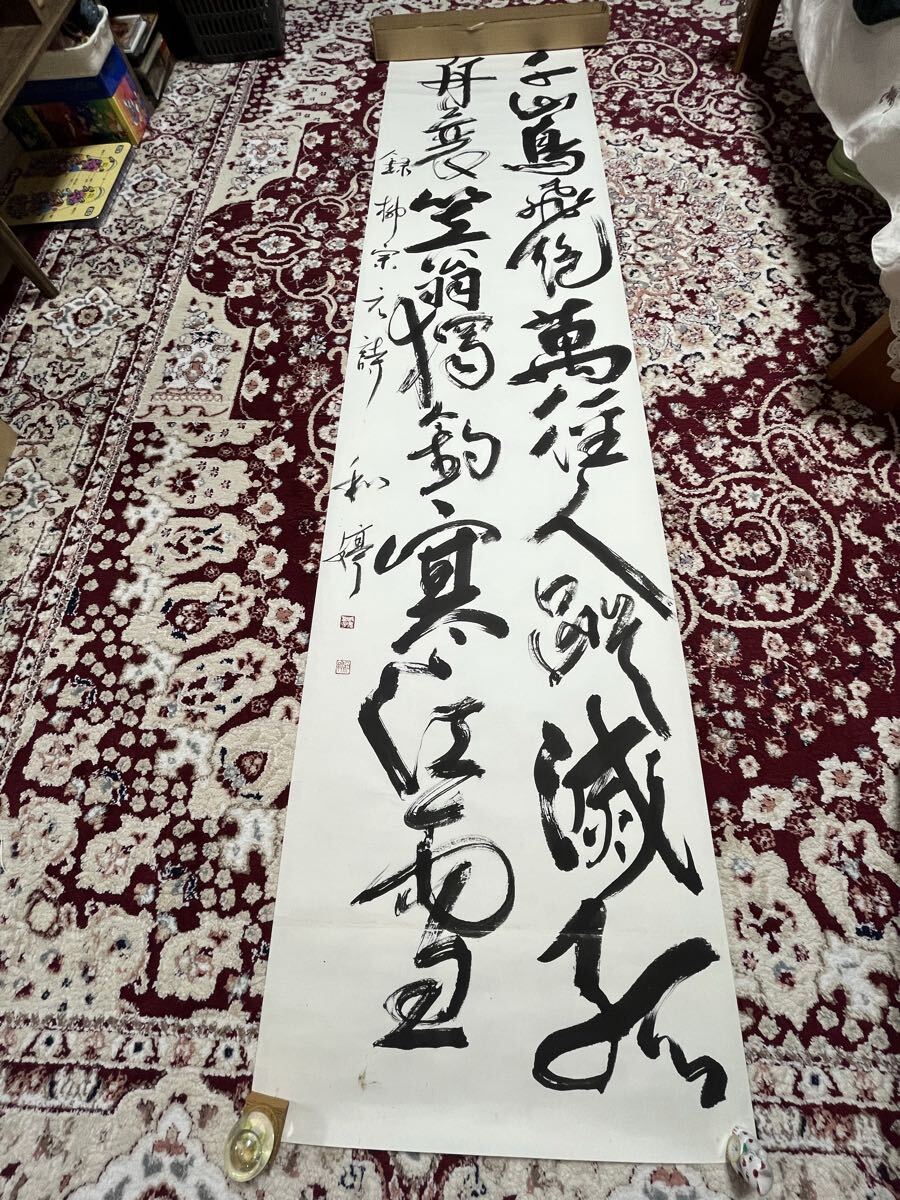 千山鳥飛絶萬径人蹤滅孤
舟蓑笠翁獨釣寒江雪
録柳宗元詩 和婷